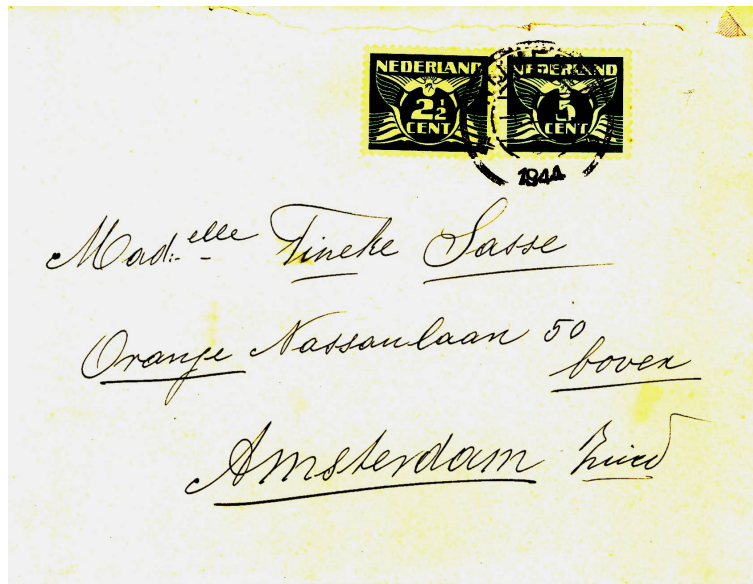 NEDERLAND NEDERLAND
2½ 5
CENT CENT
1944
Mad:elle Tineke Sasse
Oranje Nassaulaan 50
boven
Amsterdam Zuid